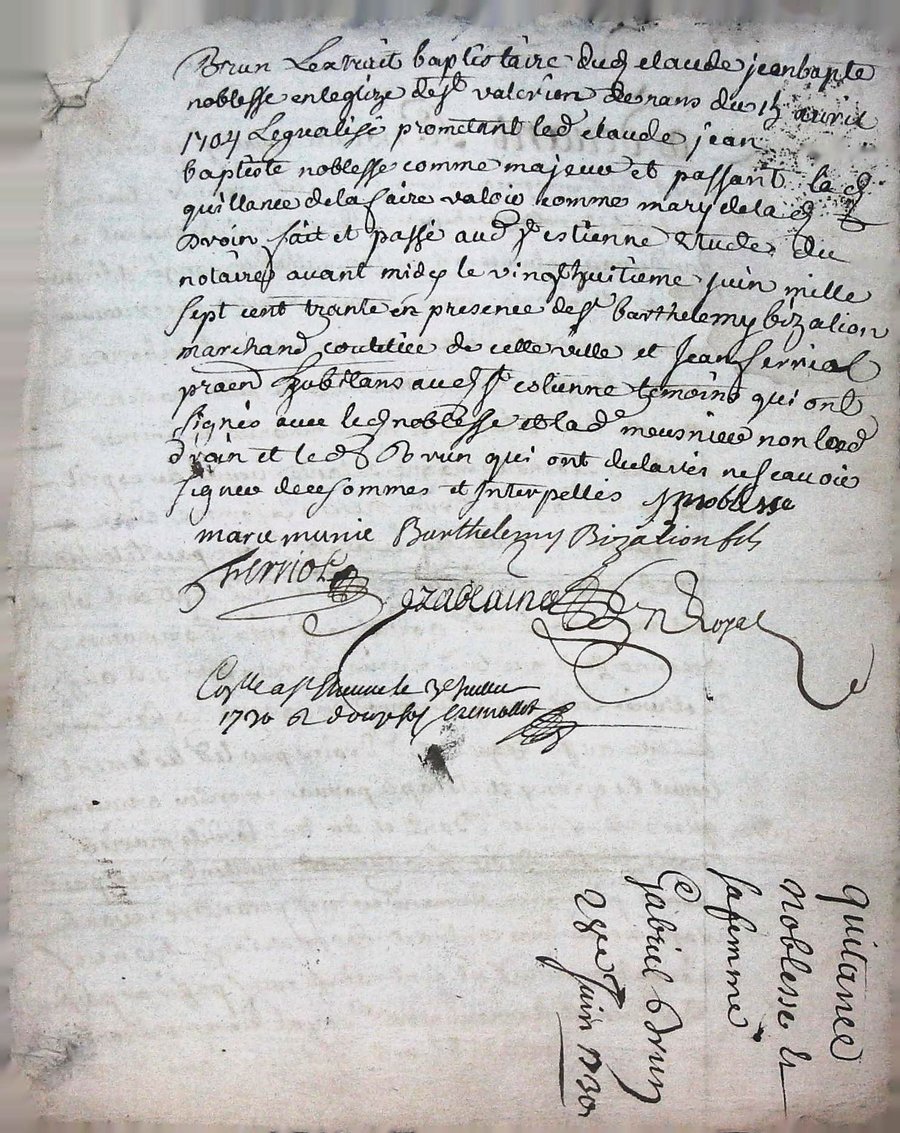 Brun Lextrait baptistaire dud claude jean bapte
noblesse en leglize de st valerien derans du 15 avril
1704 Legualisé prometant led claude jean
baptiste noblesse comme majeur et passant la d
quillance de la faire valoir comme mary de la d
Droin fait et passé aud st estienne Etude du
notaire avant midy le vingthuitieme juin mille
sept cent trante en presence de sr barthelemy bizalion
marchand coutelier de cette ville et Jean ferriol
praen habitans aud st etienne temoins qui ont
signés avec led noblesse et lad meusniere non lad
droin et led Brun qui ont declarés ne scavoir
signer de ce sommes et interpellés noblesse
marie munie Barthelemy Bizalion fils
ferriol
ezablaine n Royal
Coñlle a st Etienne le 3e juillet
1730 douze sols
quitance
noblesse et
sa femme
@
gabriel Brun
28e juin 1730